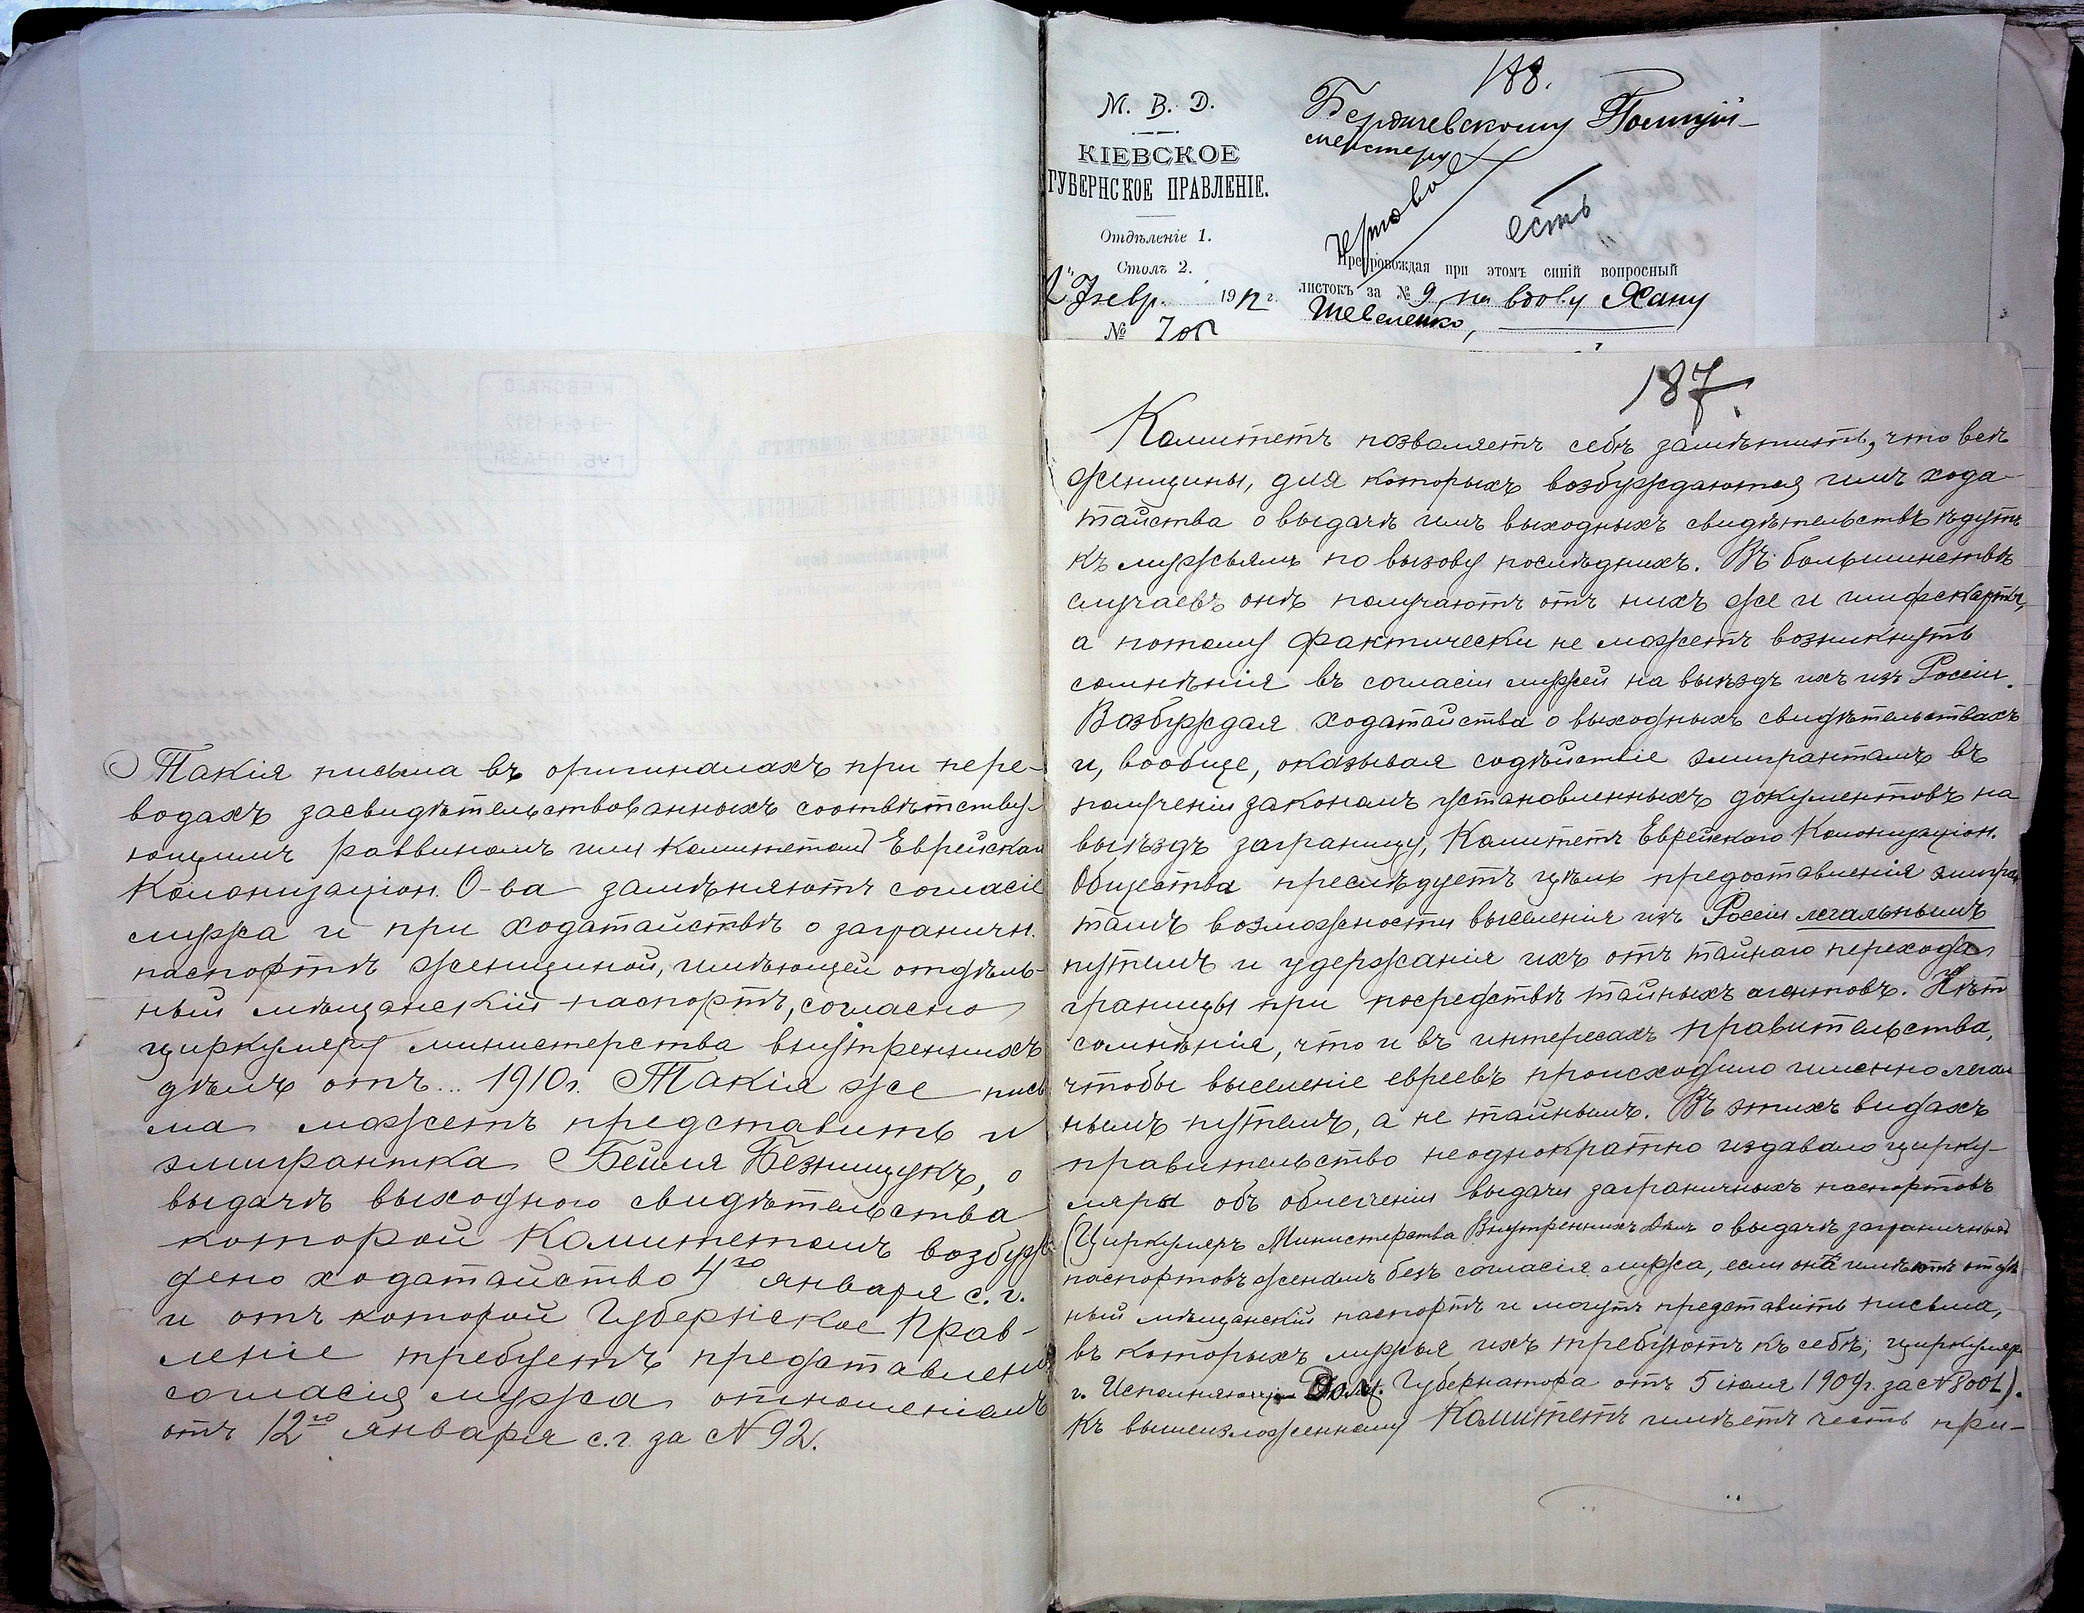 Такія письма въ оригиналахъ при пере-
водахъ засвидѣтельствованныхъ соотвѣтству-
ющимъ раввиномъ или Комитетом Еврейскаго
Колонизаціон. О-ва замѣняютъ согласіе
мужа и при ходатайствѣ о заграничн.
паспортѣ женщиной, имѣющей отдѣль-
ный мѣщанскій паспортъ, согласно
циркуляру министерства внутреннихъ
дѣлъ отъ... 1910 г. Такія же пись
ма можетъ представить и
эмигрантка Бейля Безнищукъ, о
выдачѣ выходного свидѣтельства
которой Комитетомъ возбуж
дено ходатайство 4го января с. г.
и отъ которой Губернское Прав-
леніе требуетъ представленія
согласія мужа отношеніемъ
отъ 12го января с. г. за № 92.
188.
М. В. Д.
КІЕВСКОЕ
ГУБЕРНСКОЕ ПРАВЛЕНІЕ.
Отдѣленіе 1.
Столъ 2.
Февр. 1912 г.
№
Бердичевскому Полицій-
мейстеру
есть
Препровождая при этомъ синій вопросный
листокъ за № 9, на вдову Хану
Шевеленко,
187.
Комитетъ позволяетъ себѣ замѣтить, что всѣ
женщины, для которыхъ возбуждаются имъ хода-
тайства о выдачѣ имъ выходныхъ свидѣтельствъ ѣдутъ
къ мужьямъ по вызову послѣднихъ. Въ большинствѣ
случаевъ онѣ получаютъ отъ нихъ же и шифскарты,
а потому фактически не можетъ возникнуть
сомнѣнія въ согласіи мужей на выѣздъ ихъ изъ Россіи.
Возбуждая ходатайства о выходныхъ свидѣтельствахъ
и, вообще, оказывая содѣйствіе эмигрантамъ въ
полученіи закономъ установленныхъ документовъ на
выѣздъ заграницу, Комитетъ Еврейскаго Колонизаціон.
Общества преслѣдуетъ цѣль предоставленія эмигран
тамъ возможности выселенія изъ Россіи легальнымъ
путемъ и удержанія ихъ отъ тайнаго перехода
границы при посредствѣ тайныхъ агентовъ. Нѣтъ
сомнѣнія, что и въ интересахъ правительства,
чтобы выселеніе евреевъ происходило именно легаль
нымъ путемъ, а не тайнымъ. Въ этихъ видахъ
правительство неоднократно издавало цирку-
ляры объ облегченіи выдачи заграничныхъ паспортовъ
(Циркуляръ Министерства Внутреннихъ Дѣлъ о выдачѣ заграничныхъ
паспортовъ женамъ безъ согласія мужа, если онѣ имѣютъ отдѣль
ный мѣщанскій паспортъ и могутъ представить письма,
въ которыхъ мужья ихъ требуютъ къ себѣ; циркуляр
г. Исполняющ. Долж. Губернатора отъ 5 іюля 1909 г. за № 8001).
Къ вышеизложенному Комитетъ имѣетъ честь при-